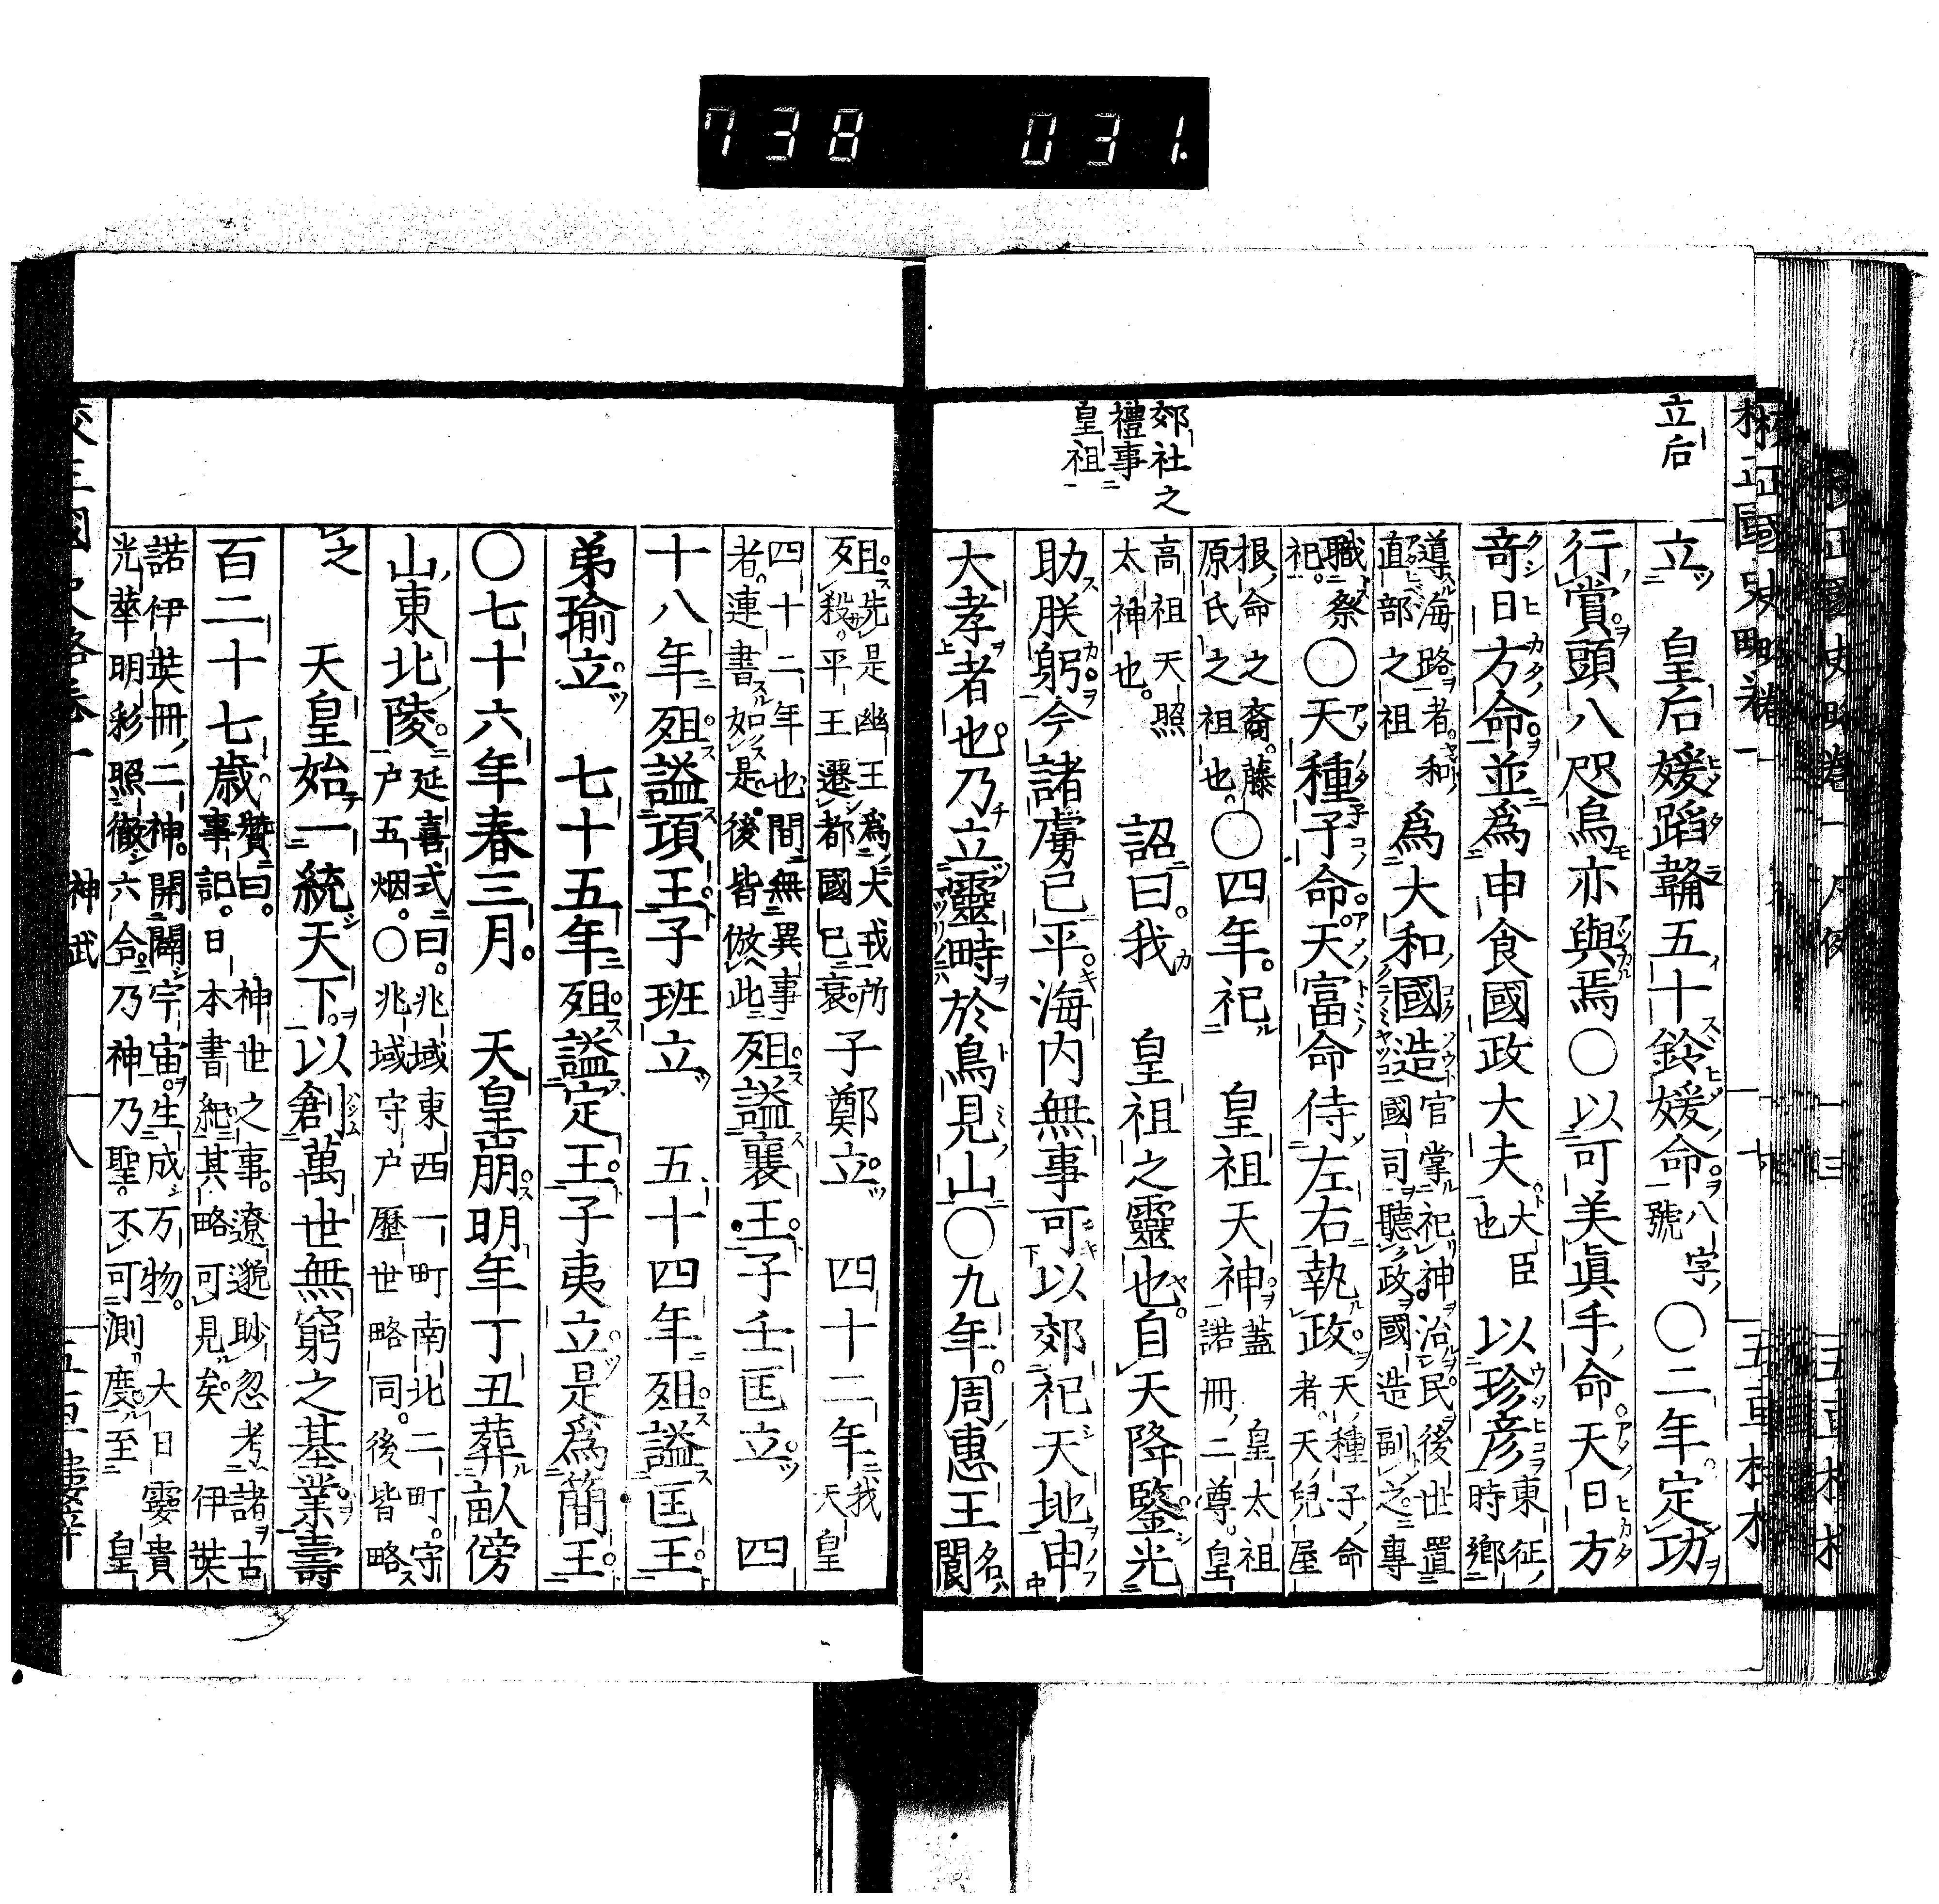 738 031.
立后
立 皇后媛蹈韛五十鈴媛命八字號○二年定功
行賞頭八咫烏亦與焉○以可美眞手命天日方
奇日方命並爲申食國政大夫大臣也以珍彥東征時鄉
導海路者和直部之祖爲大和國造官掌祀神治民後世置國司聽政國造副之專
職祭祀○天種子命天富命侍左右執政天種子命者天兒屋
根命之裔藤原氏之祖也○四年祀 皇祖天神蓋皇太祖諾冊二尊皇
高祖天照太神也 詔曰我 皇祖之靈也自天降鑒光
郊社之
禮事
皇祖
助朕躬今諸虜已平海内無事可以郊祀天地申
大孝者也乃立靈畤於鳥見山○九年周惠王名閬
殂先是幽王爲犬戎所殺平王遷都國已衰子鄭立 四十二年我天皇
四十二年也間無異事者連書如是後皆倣此殂謚襄王子壬匡立 四
十八年殂謚項王子班立 五十四年殂謚匡王
弟瑜立 七十五年殂謚定王子夷立是爲簡王
○七十六年春三月 天皇崩明年丁丑葬畝傍
山東北陵延喜式曰兆域東西一町南北二町守户五烟○兆域守户歷世略同後皆略
之 天皇始一統天下以創萬世無窮之基業壽
百二十七歳贊曰 神世之事遼邈眇忽考諸古事記日本書紀其略可見矣 伊奘
諾伊奘冊二神開闢宇宙生成万物 大日孁貴光華明彩照徹六合乃神乃聖不可測度至 皇
神武
八